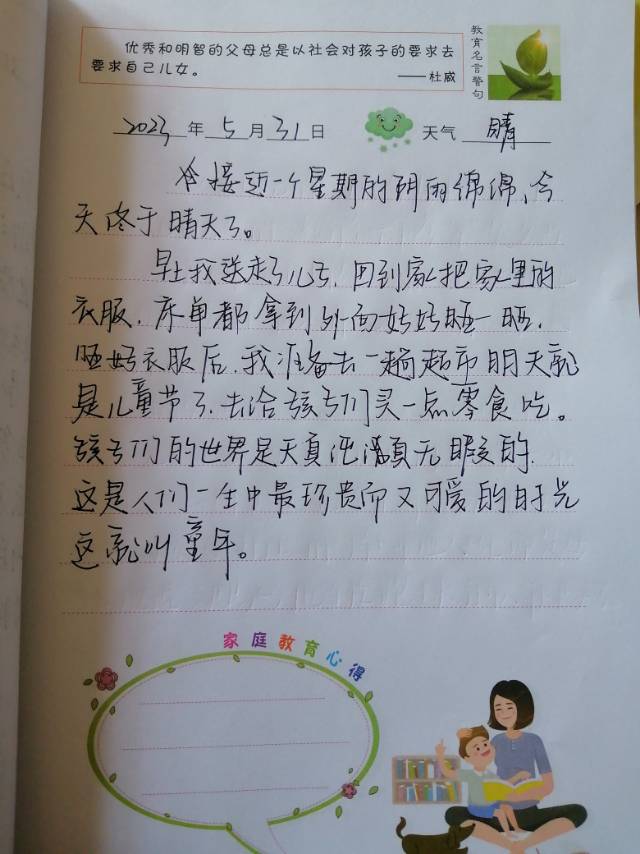 优秀和明智的父母总是以社会对孩子的要求去
要求自己儿女。
——杜威
教育名言警句
2023年5月31日 天气 晴
接近一个星期的阴雨绵绵、今
天终于晴天了。
早上我送走了儿子，回到家把家里的
衣服，床单都拿到外面好好晒一晒，
晒好衣服后，我准备去一趟超市明天就
是儿童节了，去给孩子们买一点零食吃。
孩子们的世界是天真无暇的
这是人们一生中最珍贵而又可爱的时光
这就叫童年。
家庭教育心得